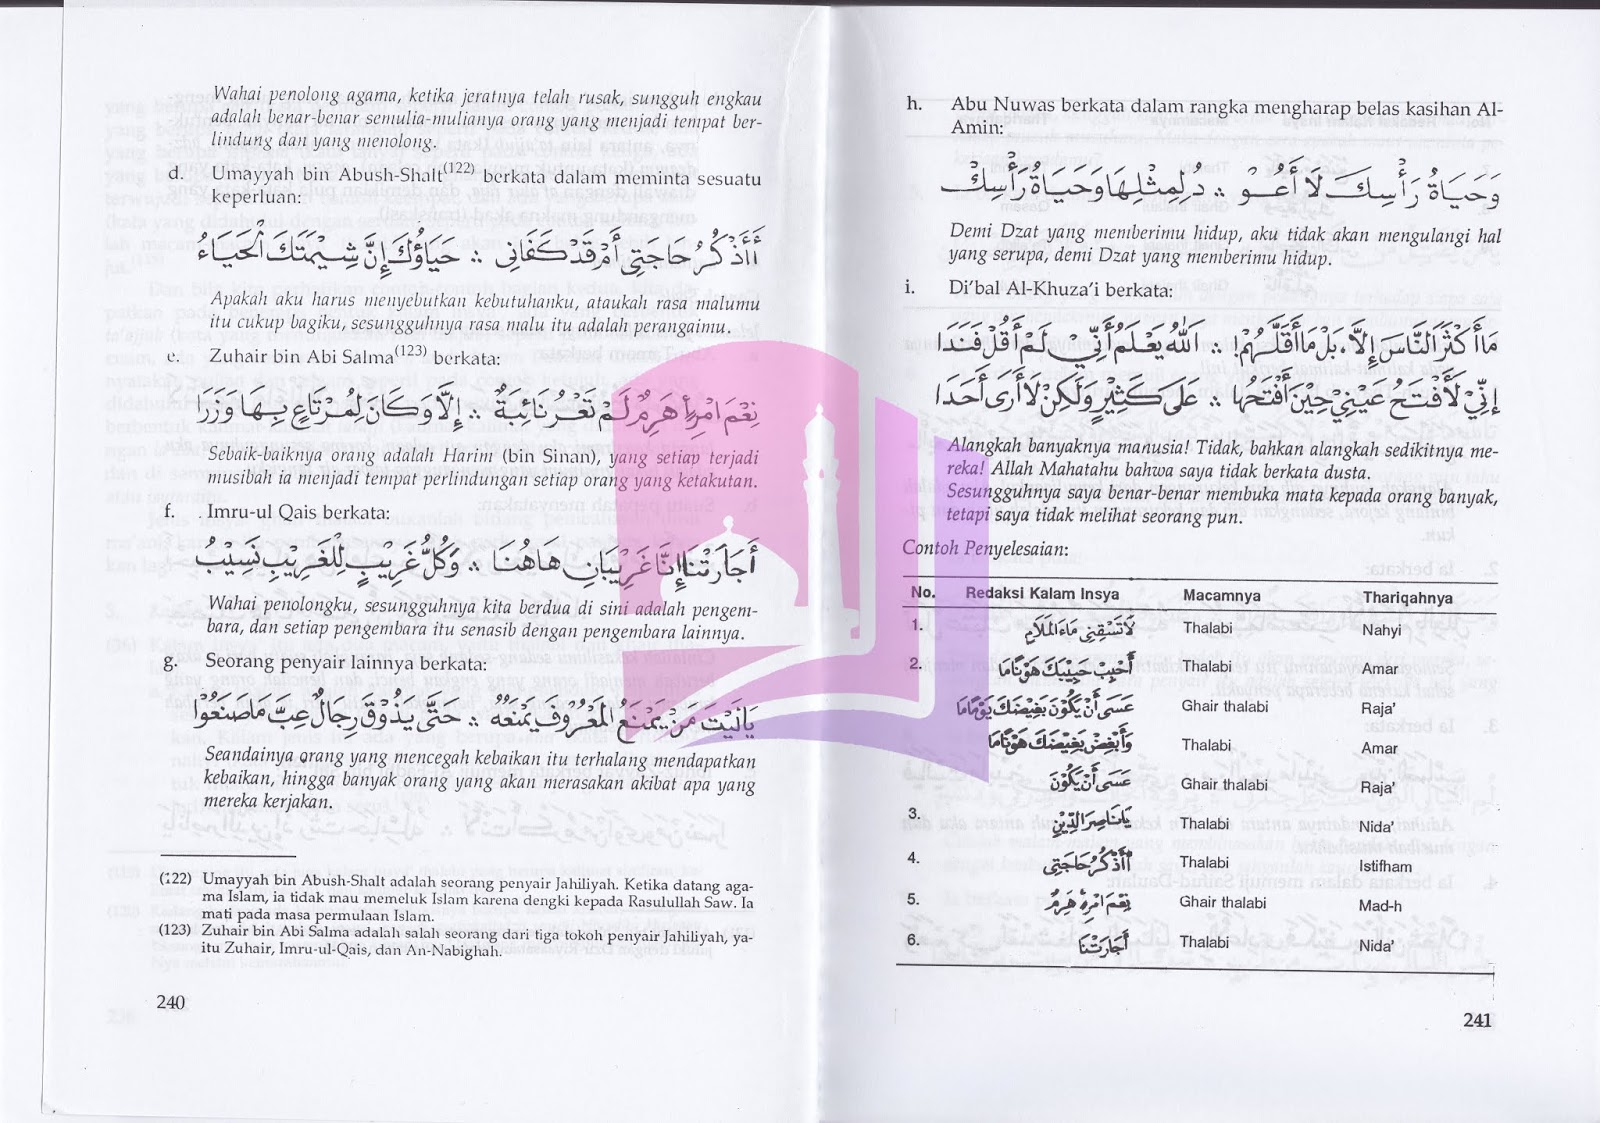 Wahai penolong agama, ketika jeratnya telah rusak, sungguh engkau
adalah benar-benar semulia-mulianya orang yang menjadi tempat ber-
lindung dan yang menolong.
d. Umayyah bin Abush-Shalt(122) berkata dalam meminta sesuatu
keperluan:
أَأَذْكُرُ حَاجَتِى أَمْ قَدْ كَفَانِى ؞ حَيَاؤُكَ إِنَّ شِيْمَتَكَ الْحَيَاءُ
Apakah aku harus menyebutkan kebutuhanku, ataukah rasa malumu
itu cukup bagiku, sesungguhnya rasa malu itu adalah perangaimu.
e. Zuhair bin Abi Salma(123) berkata:
نِعْمَ امْرِأً هَرِمٌ لَمْ تَعْرُ نَائِبَةٌ ؞ إِلاَّ وَكَانَ لِمُرْتَاعٍ بِهَا وَزَرَا
Sebaik-baiknya orang adalah Harim (bin Sinan), yang setiap terjadi
musibah ia menjadi tempat perlindungan setiap orang yang ketakutan.
f. Imru-ul Qais berkata:
أَجَارَتَنَا إِنَّا غَرِيْبَانِ هَاهُنَا ؞ وَكُلُّ غَرِيْبٍ لِلْغَرِيْبِ نَسِيْبُ
Wahai penolongku, sesungguhnya kita berdua di sini adalah pengem-
bara, dan setiap pengembara itu senasib dengan pengembara lainnya.
g. Seorang penyair lainnya berkata:
يَالَيْتَ مَنْ يَمْنَعُ الْمَعْرُوْفَ يَمْنَعُهُ ؞ حَتَّى يَذُوْقَ رِجَالٌ غِبَّ مَا صَنَعُوْا
Seandainya orang yang mencegah kebaikan itu terhalang mendapatkan
kebaikan, hingga banyak orang yang akan merasakan akibat apa yang
mereka kerjakan.
(122) Umayyah bin Abush-Shalt adalah seorang penyair Jahiliyah. Ketika datang aga-
ma Islam, ia tidak mau memeluk Islam karena dengki kepada Rasulullah Saw. Ia
mati pada masa permulaan Islam.
(123) Zuhair bin Abi Salma adalah salah seorang dari tiga tokoh penyair Jahiliyah, ya-
itu Zuhair, Imru-ul-Qais, dan An-Nabighah.
240
h. Abu Nuwas berkata dalam rangka mengharap belas kasihan Al-
Amin:
وَحَيَاةُ رَأْسِكَ لاَ أَعُوْ ؞ دُ لِمِثْلِهَا وَحَيَاةُ رَأْسِكْ
Demi Dzat yang memberimu hidup, aku tidak akan mengulangi hal
yang serupa, demi Dzat yang memberimu hidup.
i. Di'bal Al-Khuza'i berkata:
مَا أَكْثَرَ النَّاسَ إِلاَّ، بَلْ مَا أَقَلَّهُمْ! ؞ اَللهُ يَعْلَمُ أَنِّيْ لَمْ أَقُلْ فَنَدَا
إِنِّيْ لَأَفْتَحُ عَيْنِيْ حِيْنَ أَفْتَحُهَا ؞ عَلَى كَثِيْرٍ وَلَكِنْ لاَ أَرَى أَحَدَا
Alangkah banyaknya manusia! Tidak, bahkan alangkah sedikitnya me-
reka! Allah Mahatahu bahwa saya tidak berkata dusta.
Sesungguhnya saya benar-benar membuka mata kepada orang banyak,
tetapi saya tidak melihat seorang pun.
Contoh Penyelesaian:
No. Redaksi Kalam Insya Macamnya Thariqahnya
1. لاَ تَسْقِنِى مَاءَ الْمَلاَمِ Thalabi Nahyi
2. أَحْبِبْ حَبِيْبَكَ هَوْنًامَا Thalabi Amar
عَسَى أَنْ يَكُوْنَ بَغِيْضَكَ يَوْمًامَا Ghair thalabi Raja'
وَأَبْغِضْ بَغِيْضَكَ هَوْنًامَا Thalabi Amar
عَسَى أَنْ يَكُوْنَ Ghair thalabi Raja'
3. يَانَاصِرَ الدِّيْنِ Thalabi Nida'
4. أَأَذْكُرُ حَاجَتِى Thalabi Istifham
5. نِعْمَ امْرِأً هَرِمٌ Ghair thalabi Mad-h
6. أَجَارَتَنَا Thalabi Nida'
241